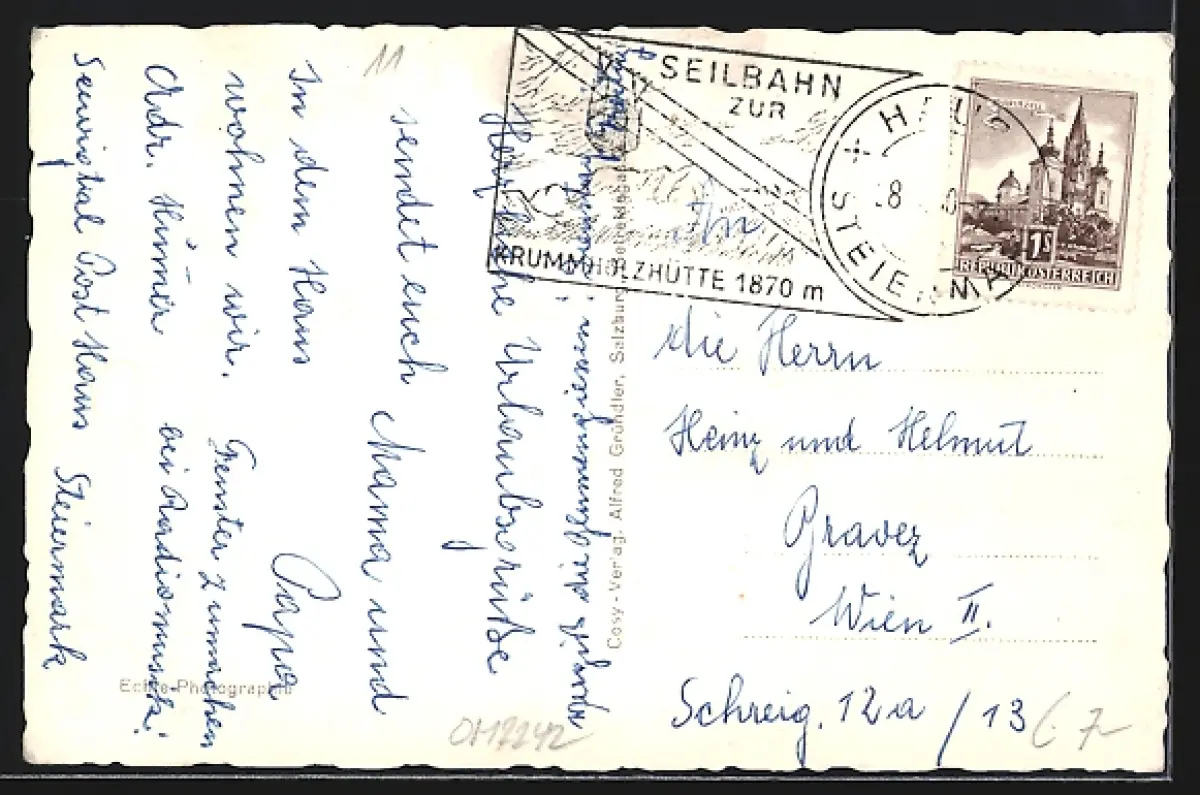 11
SEILBAHN
ZUR
KRUMMHOLZHÜTTE 1870 m
HAUS
STEIERMA
8
MARIAZELL
1S
REPUBLIK ÖSTERREICH
An
die Herrn
Heinz und Helmut
Gravez
Wien II.
Schreig. 12a / 13
7
Herzliche Urlaubsgrüße
sendet euch Mama und
Papa
In dem Haus
wohnen wir.
Fenster zumachen
bei Radiomusik!
Adr. Hümer
Post Haus Steiermark
Cosy-Verlag, Alfred Gründler, Salzburg
Echte Photographie